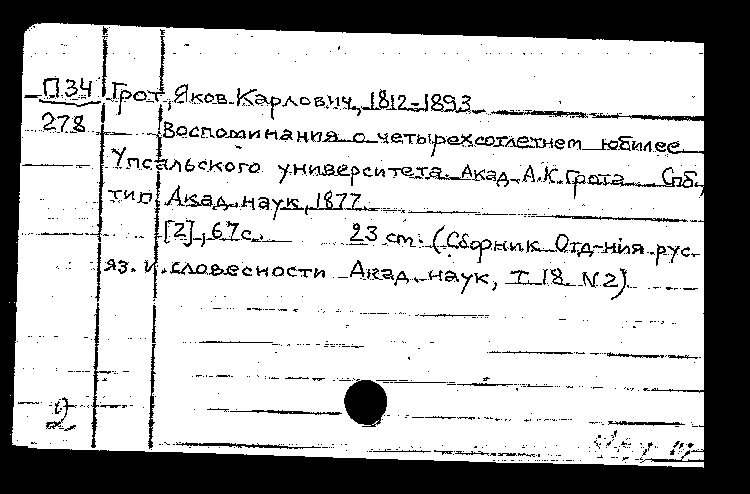 П34 Грот, Яков Карлович, 1812-1893
278 Воспоминания о четырехсотлетнем юбилее
Упсальского университета. Акад. А.К. Грота Спб.,
тип. Акад. наук, 1877.
[2], 67с. 23 cm. (Сборник Отд-ния рус.
яз. и словесности Акад. наук, т. 18. N 2)
2